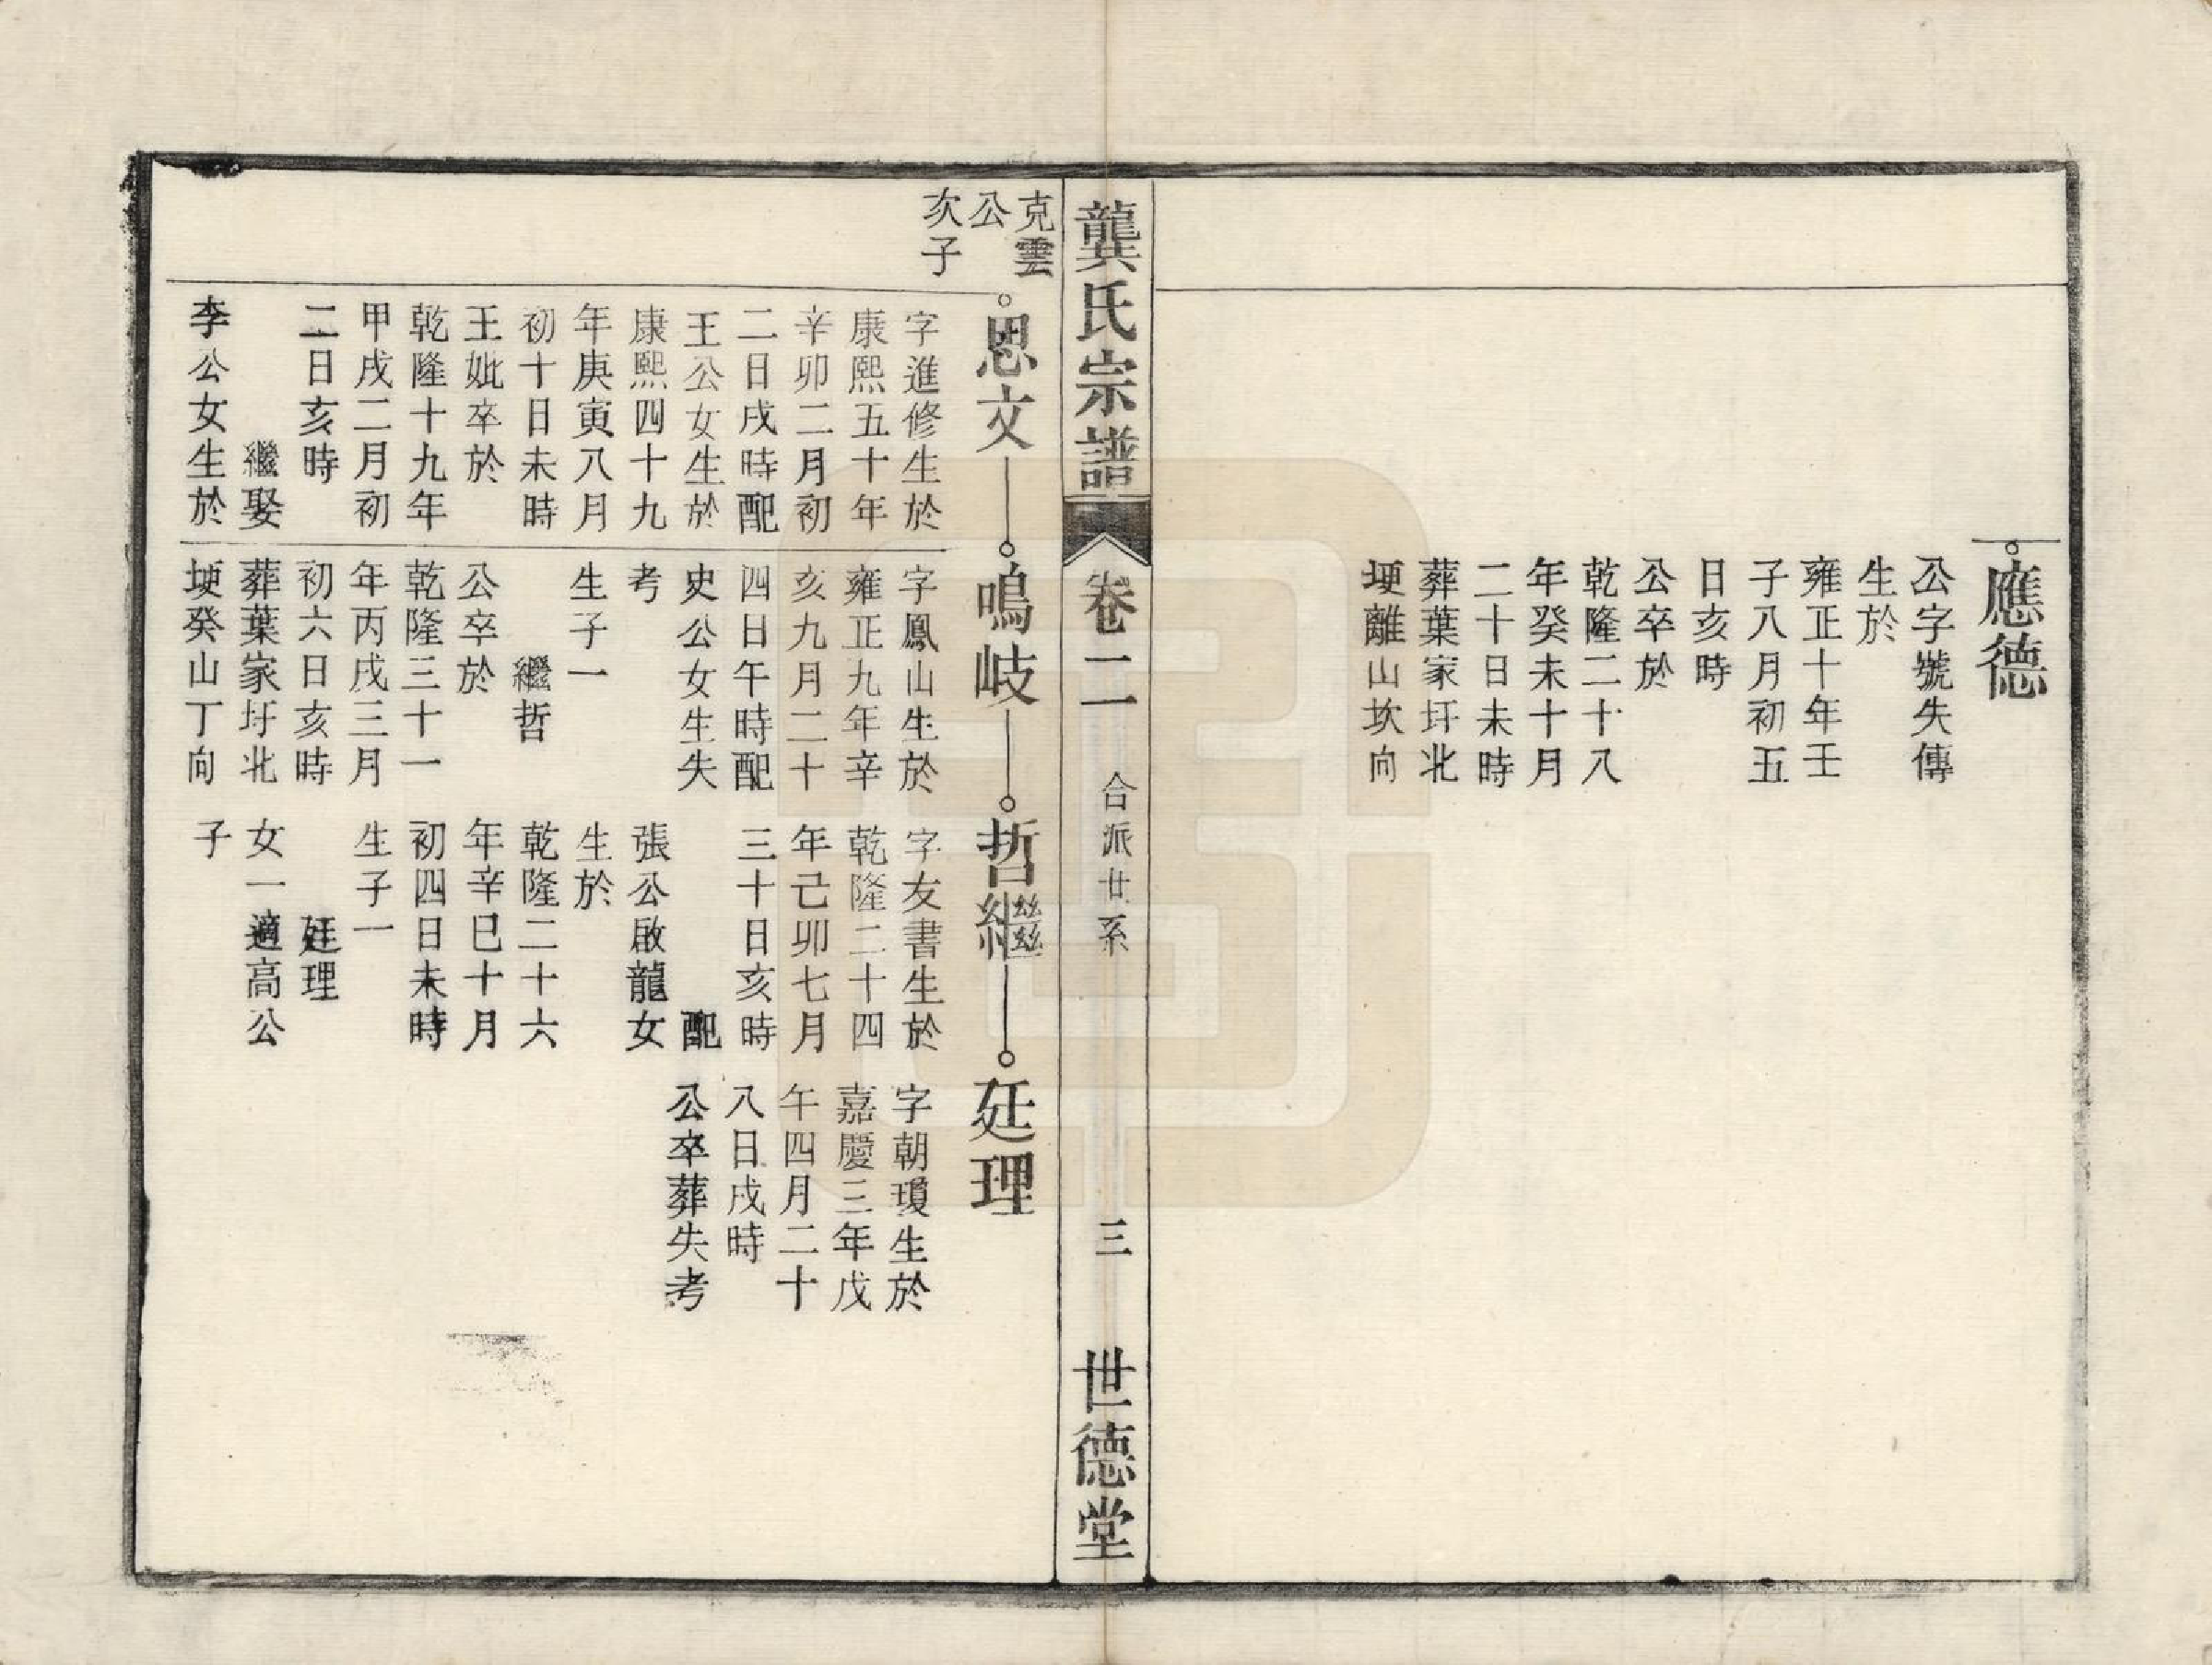 應德
公字號失傳
生於
雍正十年壬
子八月初五
日亥時
公卒於
乾隆二十八
年癸未十月
二十日未時
葬葉家圩北
埂離山坎向
龔氏宗譜
卷二
合派廿系
三
世德堂
克雲
公
次子
思文
字進修生於
康熙五十年
辛卯二月初
二日戌時配
王公女生於
康熙四十九
年庚寅八月
初十日未時
王妣卒於
乾隆十九年
甲戌二月初
二日亥時
繼娶
李公女生於
鳴岐
字鳳山生於
雍正九年辛
亥九月二十
四日午時配
史公女生失
考
生子一
繼哲
公卒於
乾隆三十一
年丙戌三月
初六日亥時
葬葉家圩北
埂癸山丁向
哲繼
字友書生於
乾隆二十四
年己卯七月
三十日亥時
配
張公啟龍女
生於
乾隆二十六
年辛巳十月
初四日未時
生子一
廷理
女一適高公
子
廷理
字朝瓊生於
嘉慶三年戊
午四月二十
八日戌時
公卒葬失考